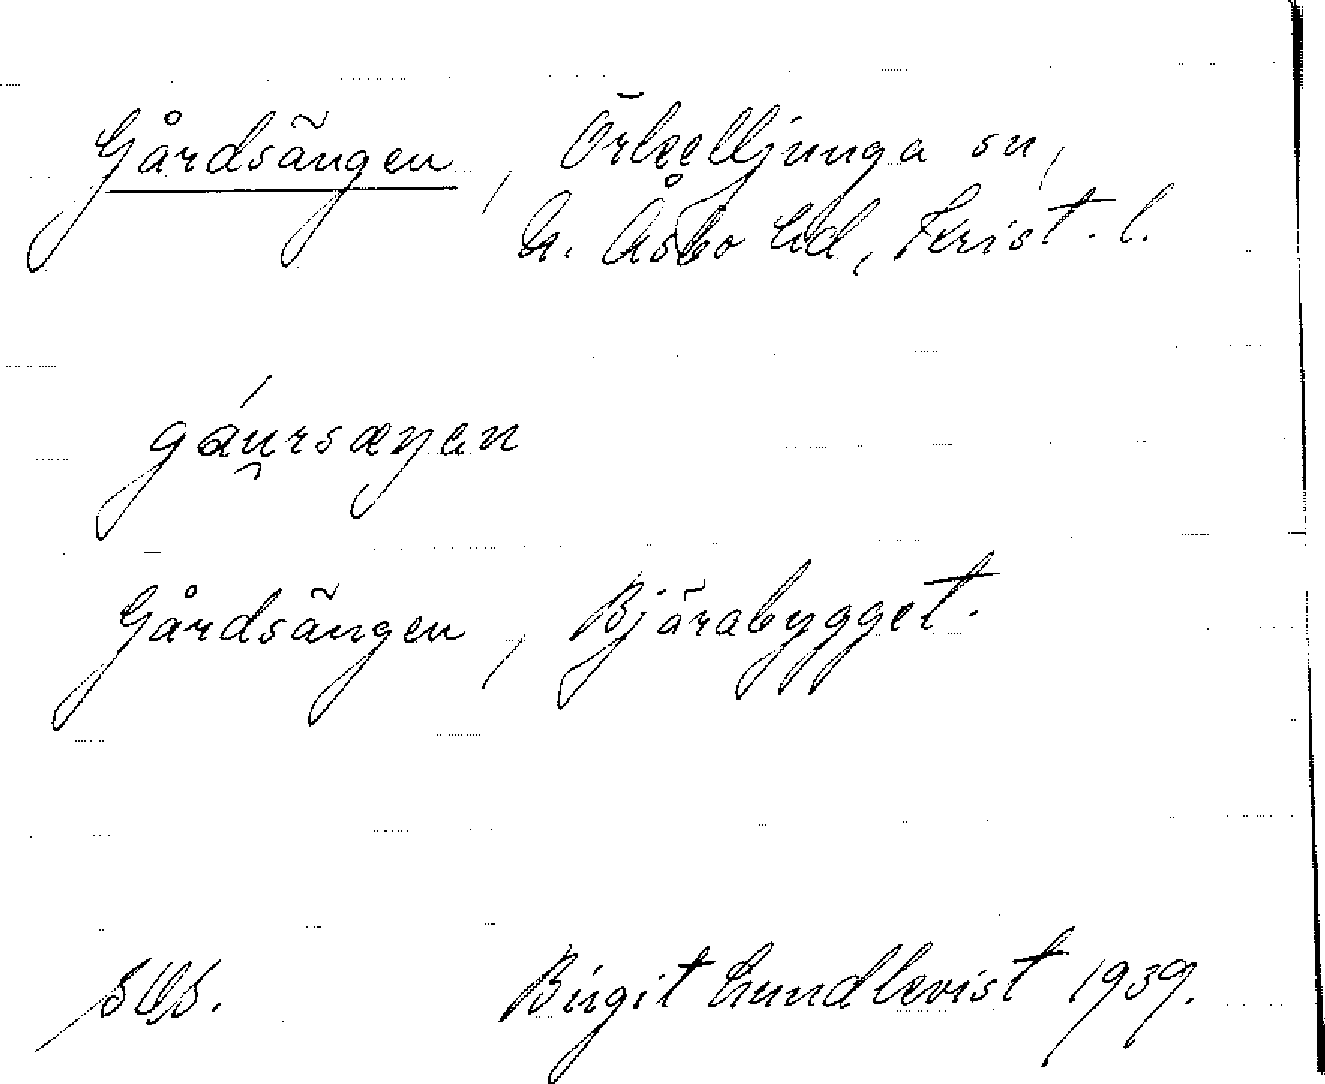 Gårdsängen, Örkelljunga sn,
N. Åsbo hd, Krist. l.
gáu̯rsæŋan
Gårdsängen, Bjärabygget.
Birgit Lundkvist 1939.